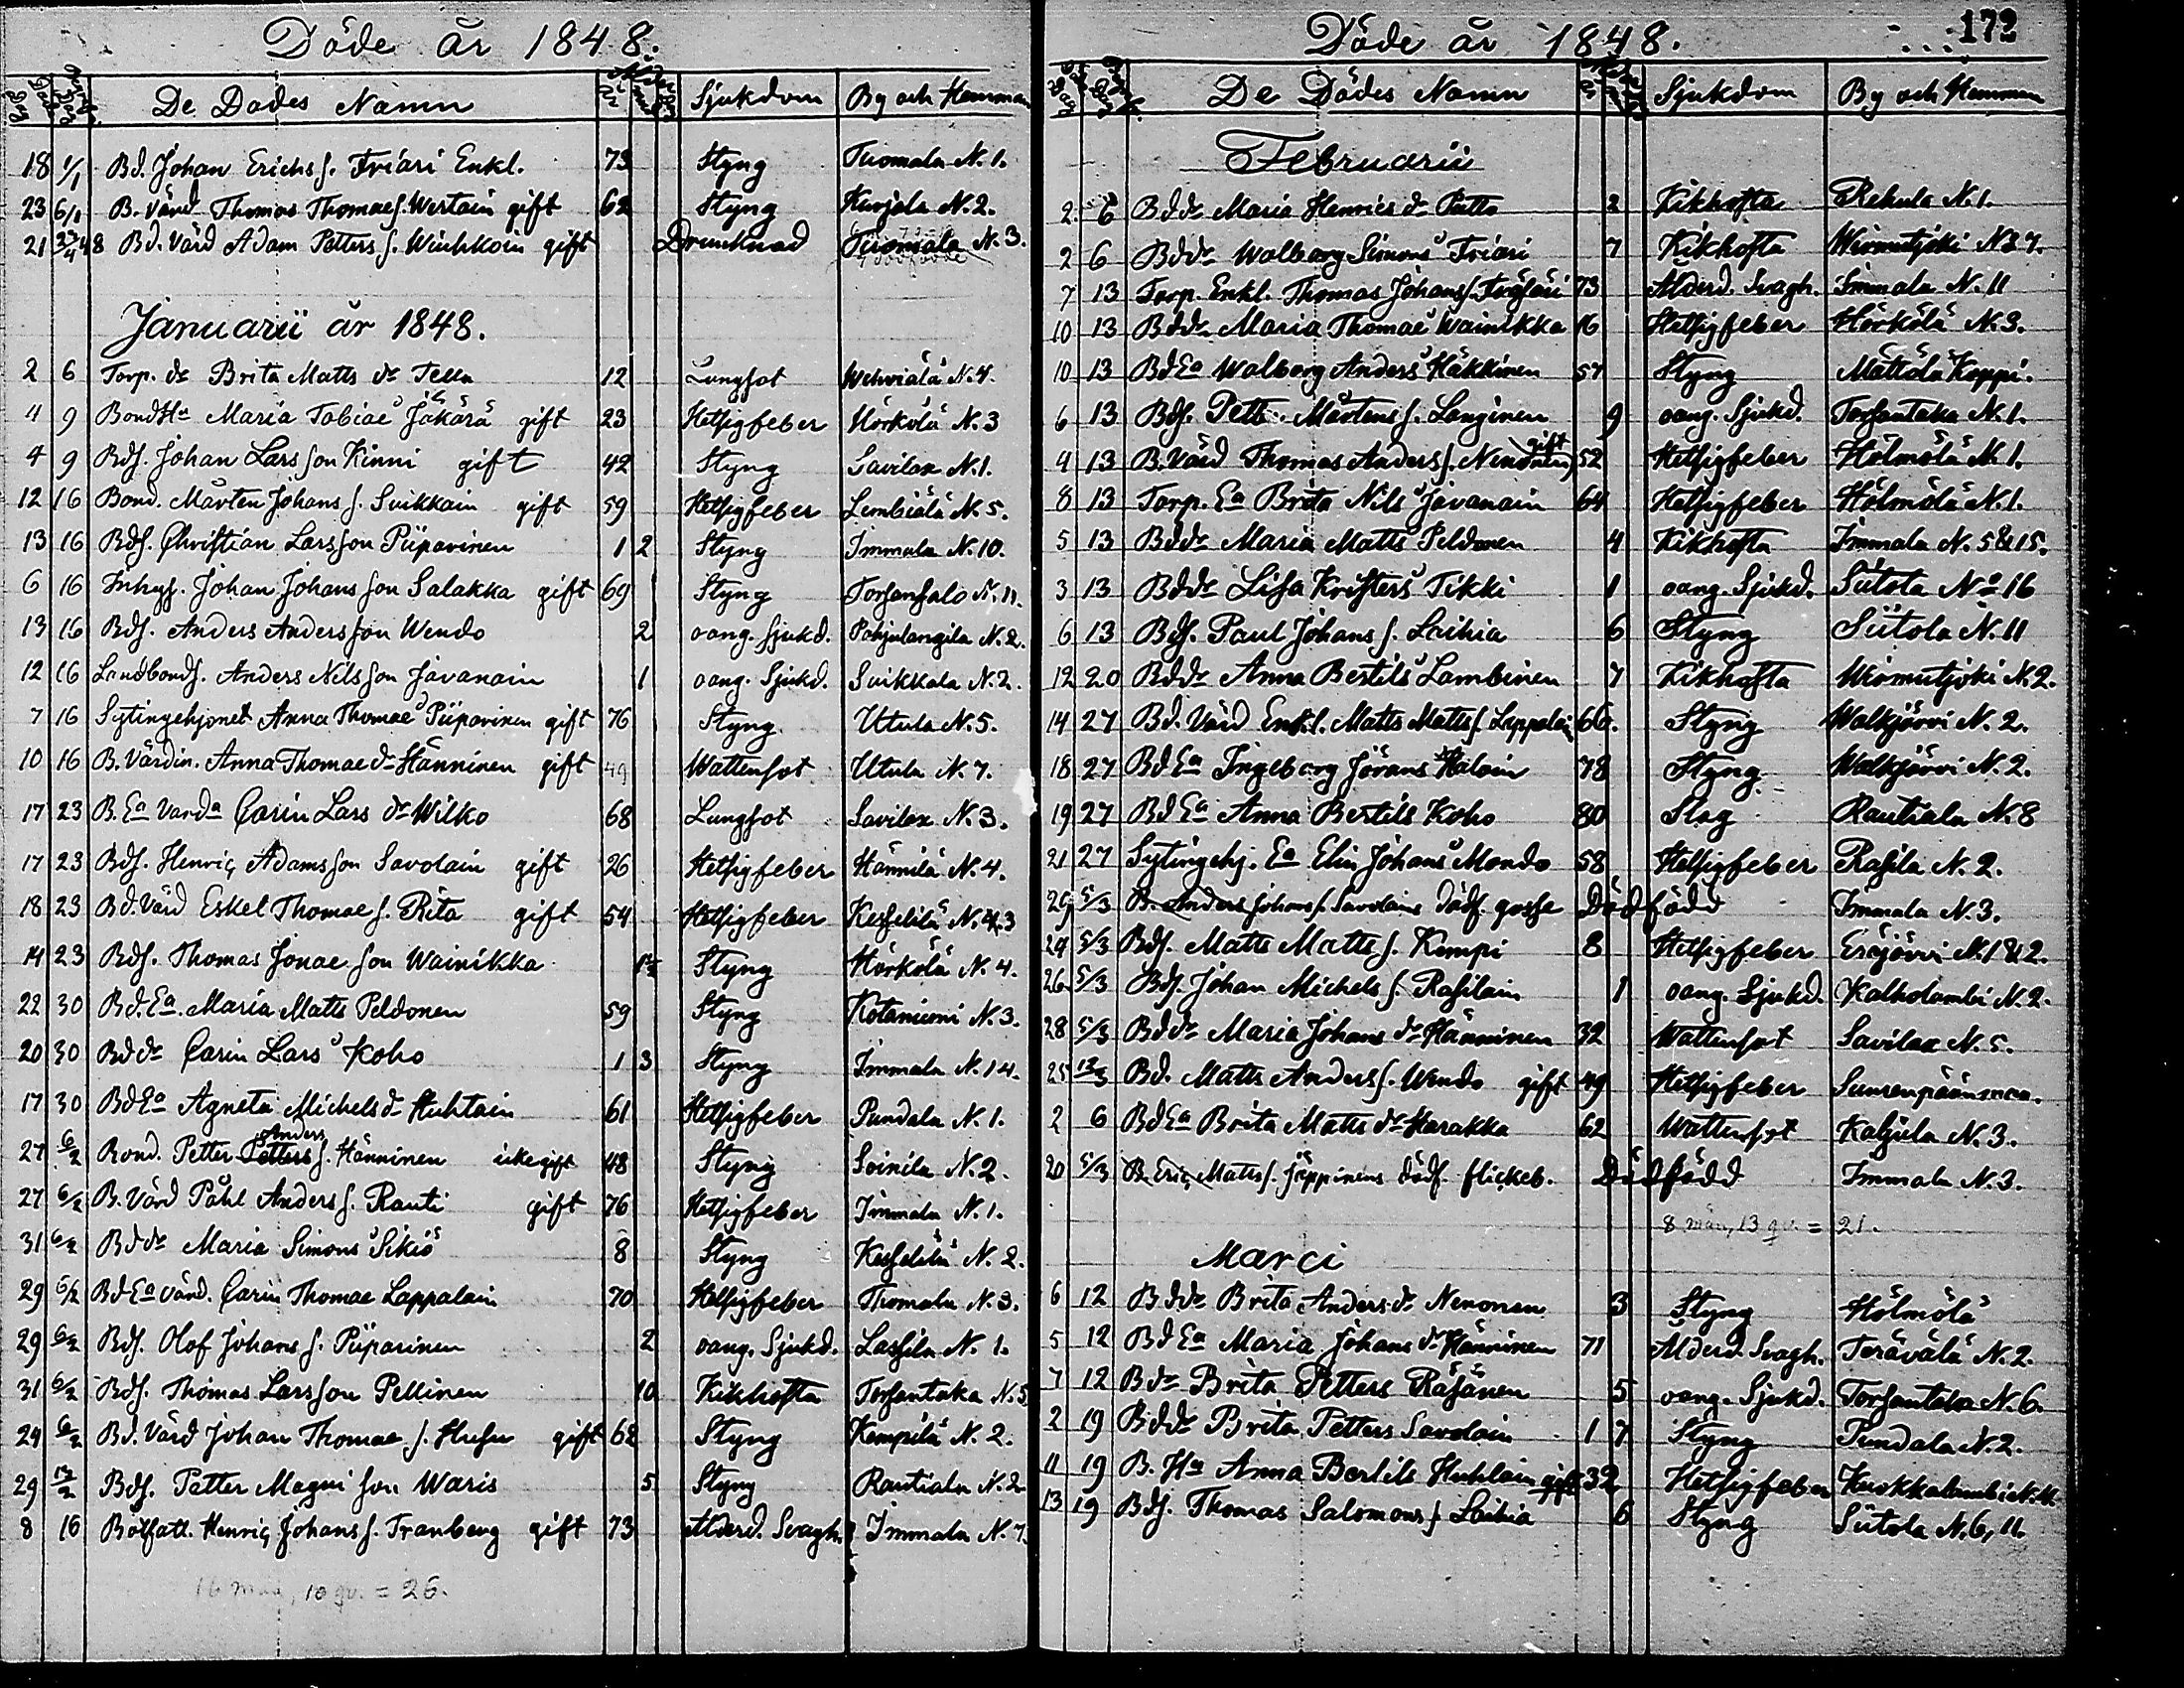 Döde år 1848.
De Dödes Namn Sjukdom By och Hemman
18 1/1 Bd. Johan Erichs s. Friari Enkl. 73 Styng Tuomala N. 1.
23 6/1 B. Värd Thomas Thomae s. Wertain gift 62 Styng Kurjala N. 2.
21 Bd. Värd Adam Petters s. Winhkoin gift Drunknad Tuomala N. 3.
Januarii år 1848.
2 6 Torp. dr Brita Matts dr Tella 12 Lungsot Wehviälä N. 4.
4 9 Bond Ha Maria Tobiae Jäkärä gift 23 Hetsigfeber Hörkölä N. 3
4 9 Bds. Johan Larsson Kinni gift 42 Styng Savilax N. 1.
12 16 Bond. Mårten Johans s. Suikkain gift 59 Hetsigfeber Lembiälä N. 5.
13 16 Bds. Christian Larsson Piiparinen 1 2 Styng Immala N. 10.
6 16 Inhys. Johan Johansson Salakka gift 69 Styng Torsansalo N. 11.
13 16 Bds. Anders Andersson Wendo 2 oang. sjukd. Pohjalangila N. 2.
12 16 Landbonds. Anders Nilsson Javanain 1 oang. Sjukd. Suikkala N. 2.
7 16 Sytingehjonet Anna Thomae Piiparinen gift 76 Styng Utula N. 5.
10 16 B. Värdin. Anna Thomae dr Hänninen gift 49 Wattensot Utula N. 7.
17 23 B. Ea Varda Carin Lars dr Wilko 68 Lungsot Savilax N. 3.
17 23 Bds. Henric Adamsson Savolain gift 26 Hetsigfeber Hännilä N. 4.
18 23 Bd. Värd Eskel Thomae s. Rita gift 54 Hetsigfeber Kesselilä N. 4.3
14 23 Bds. Thomas Jonae son Wainikka 1½ Styng Hörkölä N. 4.
22 30 Bd. Ea. Maria Matts Peldonen 59 Styng Kotaniemi N. 3.
20 30 Bd dr Carin Lars Koho 1 3 Styng Immala N. 14.
17 30 Bd Ea Agneta Michels dr Huhtain 61 Hetsigfeber Pundala N. 1.
27 6/2 Bond. Petter Petters Anders s. Hänninen icke gift 48 Styng Soinila N. 2.
27 6/2 B. Värd Påhl Anders s. Rauti gift 76 Hetsigfeber Immala N. 1.
31 6/2 Bd dr Maria Simons Sikiö 8 Styng Kesselilä N. 2.
29 6/2 Bd Ea värd. Carin Thomae Lappalain 70 Hetsigfeber Thomala N. 3.
29 6/2 Bds. Olof Johans s. Piiparinen 2 oang. Sjukd. Lassila N. 1.
31 6/2 Bds. Thomas Larsson Pellinen 10 Kikhosta Torsantaka N. 5
24 6/2 Bd. Värd Johan Thomae s. Husu gift 62 Styng Kempilä N. 2.
29 13/2 Bds. Petter Magni son Waris 5 Styng Rautiala N. 2
8 16 Botfatt. Henric Johans s. Tranberg gift 73 Ålderd. Svagh. Immala N. 7.
16 män, 10 qv. = 26.
Döde år 1848.
172
De Dödes Namn Sjukdom By och Hemman
Februarii
2 6 Bd dr Maria Henrics dr Putto 2 Kikhosta Rekula N. 1.
2 6 Bd dr Walborg Simons Friari 7 Kikhosta Wirmutjoki N. 7.
7 13 Torp. Enkl. Thomas Johans s. 73 Ålderd. Svagh. Immala N. 11
10 13 Bd dr Maria Thomae Wainikka 16 Hetsigfeber Hörkölä N. 3.
10 13 Bd Ea Walborg Anders Häkkinen 57 Styng Mättölä Koppi.
6 13 Bds. Pett. Mårtens s. Langinen 9 oang. Sjukd. Torsantaka N. 1.
4 13 B. Värd Thomas Anders s. Nenonen gift 52 Hetsigfeber Hölmölä N. 1.
8 13 Torp. Ea Brita Nils Javanain 64 Hetsigfeber Hölmölä N. 1.
5 13 Bd dr Maria Matts Peldonen 4 Kikhosta Immala N. 5 & 15.
3 13 Bd dr Lisa Kristers Tikki 1 oang. Sjukd. Siitola No 16
6 13 Bds. Paul Johans s. Laihia 6 Styng Siitola N. 11
12 20 Bd dr Anna Bertils Lambinen 7 Kikhosta Wirmutjoki N. 2.
14 27 Bd. Värd Enkl. Matts Matts s. Lappalain 66. Styng Walkjärvi N. 2.
18 27 Bd Ea Ingeborg Jörans Haloin 78 Styng Walkjärvi N. 2.
19 27 Bd Ea Anna Bertils Koho 80 Slag Rautiala N. 8
21 27 Sytingehj. Ea Elin Johans Mondo 58 Hetsigfeber Rasila N. 2.
29 5/3 B. Anders Johans s. Savolains dödf. gosse Dödfödd Immala N. 3.
24 5/3 Bds. Matts Matts s. Kempi 8 Hetsigfeber Eräjärvi N. 1 & 2.
26 5/3 Bds. Johan Michels s. Rasilain 1 oang. Sjukd. Kalholambi N. 2.
28 5/3 Bd dr Maria Johans dr Hänninen 32 Wattensot Savilax N. 5.
25 12/3 Bd. Matts Anders s. Wendo gift 49 Hetsigfeber Suurenpäänmaa.
2 6 Bd Ea Brita Matts dr Harakka 62 Wattensot Kaljula N. 3.
20 5/3 B. Eric Matts s. Jäppinens dödf. flickeb. Dödfödd Immala N. 3.
8 män, 13 qv. = 21.
Marci
6 12 Bd dr Brita Anders dr Nenonen 3 Styng Hölmölä
5 12 Bd Ea Maria Johans dr Hänninen 71 Ålderd. Svagh. Terävälä N. 2.
7 12 B dr Brita Petters Räsänen 5 oang. Sjukd. Torsantaka N. 6.
2 19 Bd dr Brita Petters Savolain 1 7 Styng Pundala N. 2.
11 19 B. Ha Anna Bertils Huhtain gift 32 Hetsigfeber Kuokkalambi N. 4
13 19 Bds. Thomas Salomons s. Laihia 6 Styng Siitola N. 6, 11.